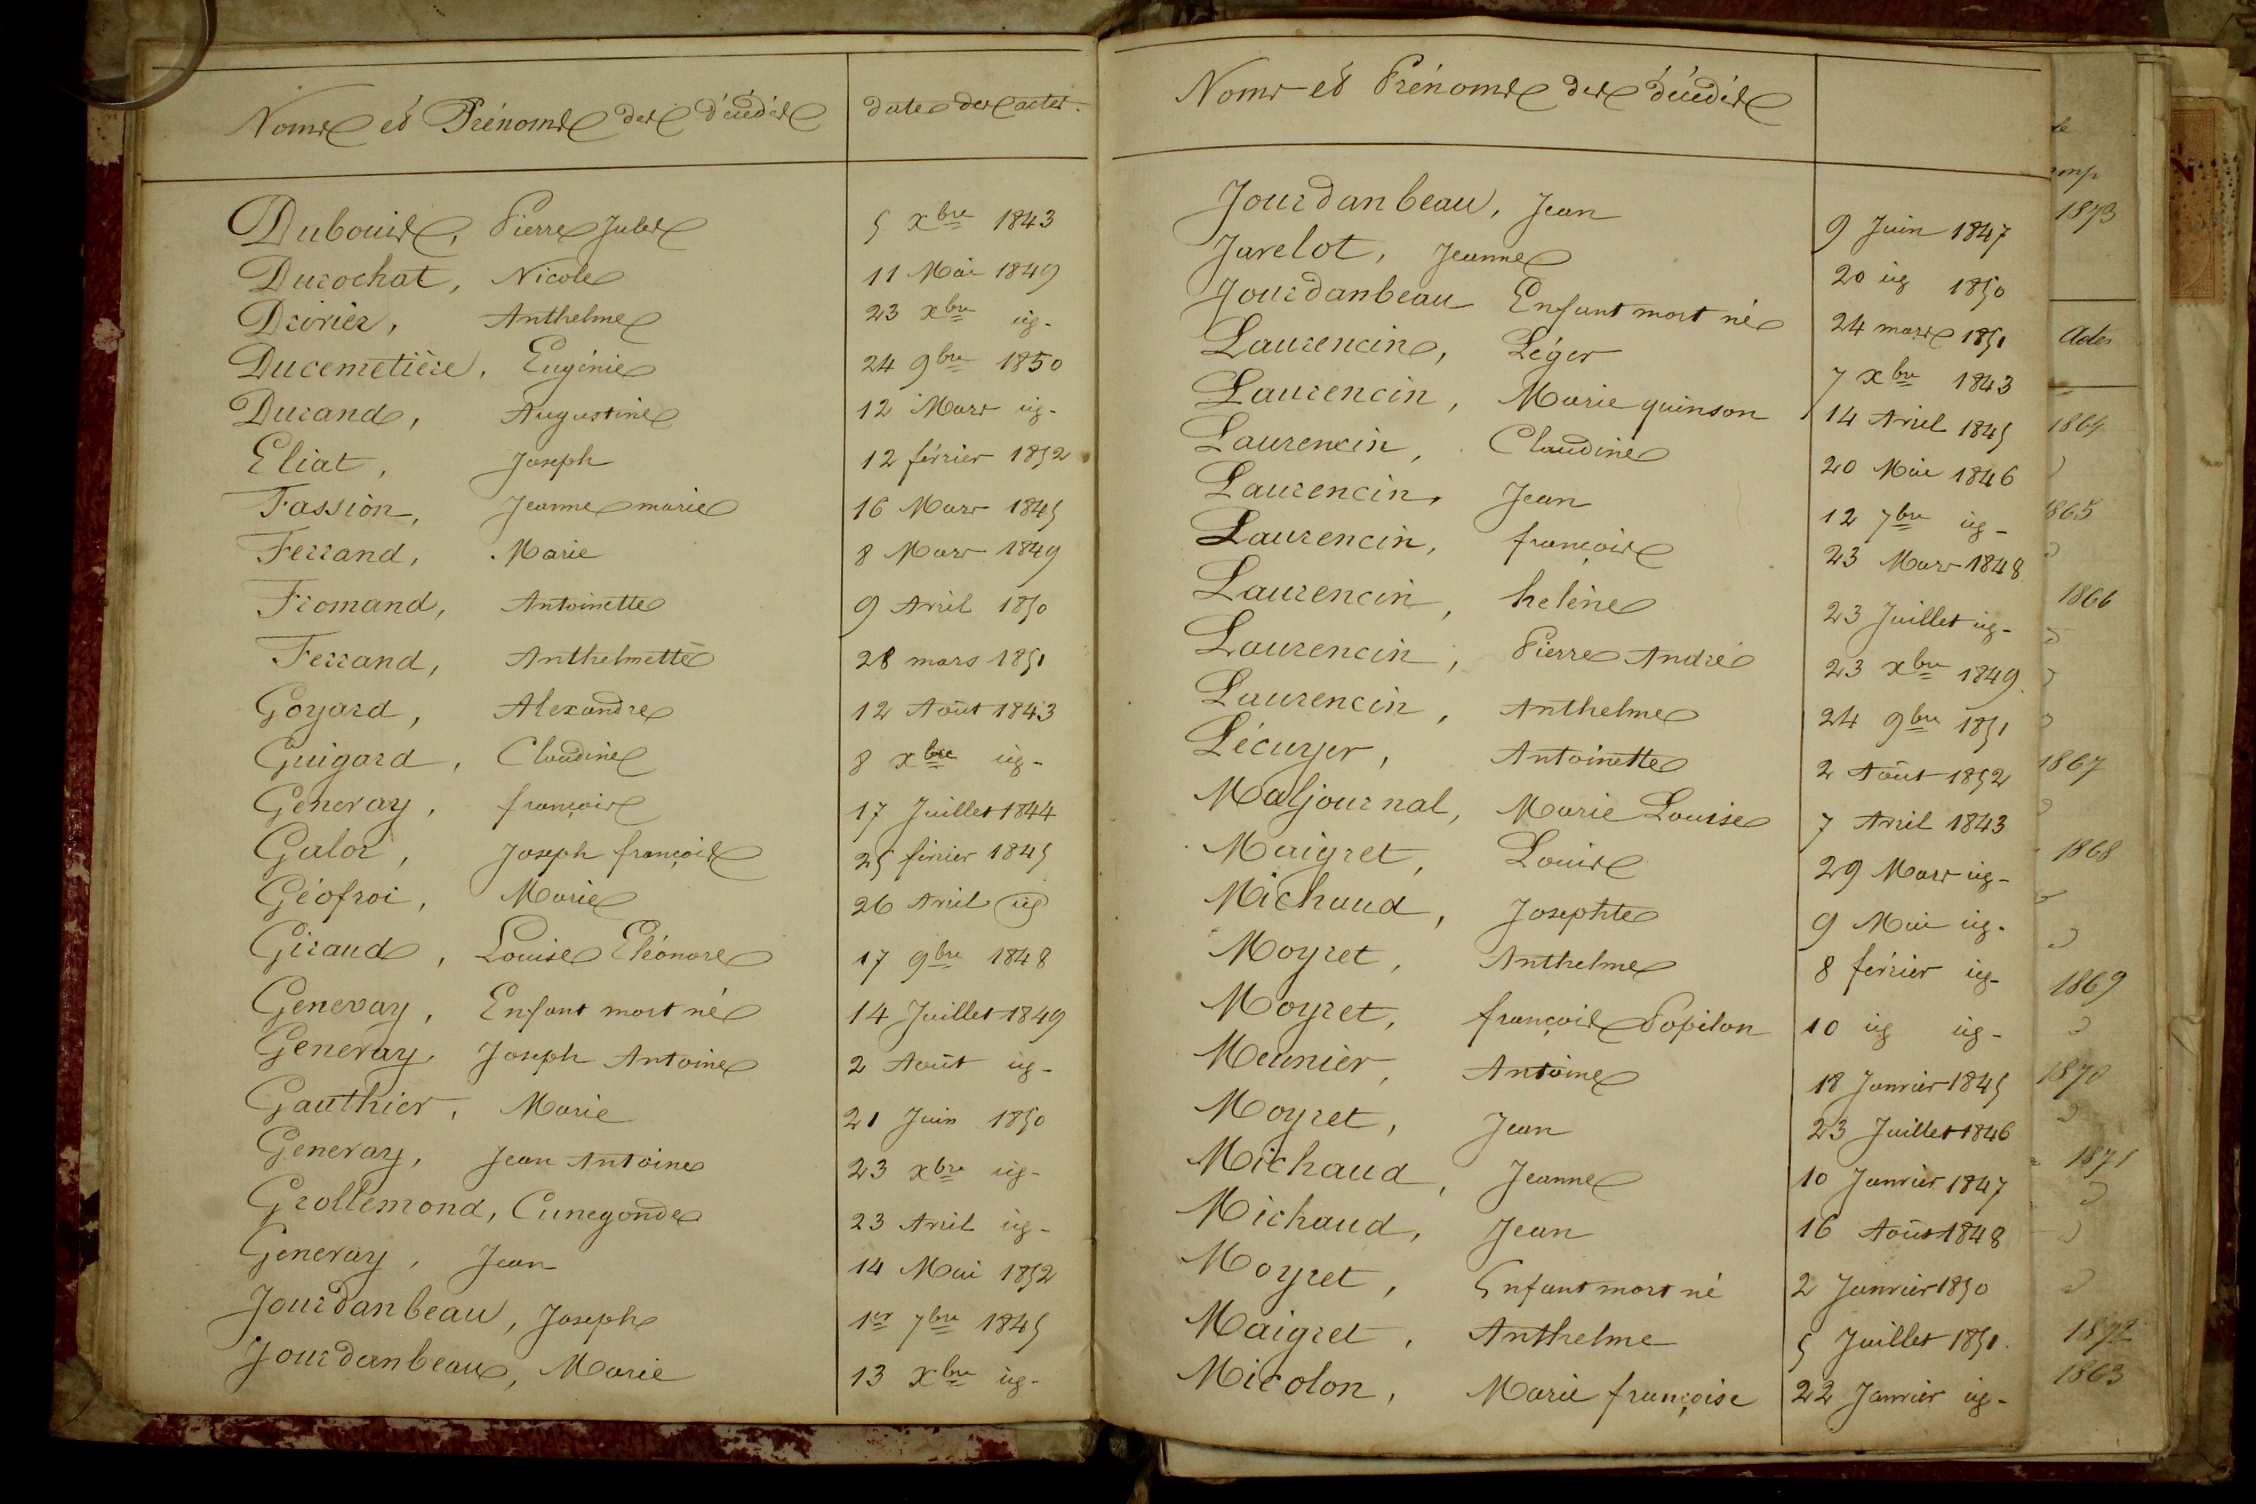 Noms et Prénoms des décédés dates des actes.
Dubouis, Pierre Jules 5 Xbre 1843
Durochat, Nicole 11 Mai 1849
Drivier, Anthelme 23 Xbre ig-
Ducemetière, Eugénie 24 9bre 1850
Durand, Augustine 12 Mars ig-
Eliat, Joseph 12 février 1852
Fassion, Jeanne marie 16 Mars 1845
Ferrand, Marie 8 Mars 1849
Fromand, Antoinette 9 Avril 1850
Ferrand, Anthelmette 28 mars 1851
Goyard, Alexandre 12 Août 1843
Guigard, Claudine 8 Xbre ig-
Genevay, françois 17 Juillet 1844
Galor, Joseph françois 25 février 1845
Géofroi, Marie 26 Avril ig
Giraud, Louise Eléonore 17 9bre 1848
Genevay, Enfant mort né 14 Juillet 1849
Genevay, Joseph Antoine 2 Août ig-
Gauthier, Marie 21 Juin 1850
Genevay, Jean Antoine 23 Xbre ig-
Grollemond, Cunegonde 23 Avril ig-
Genevay, Jean 14 Mai 1852
Jourdanbeau, Joseph 1er 7bre 1845
Jourdanbeau, Marie 13 Xbre ig-
Noms et Prénoms des décédés
Jourdanbeau, Jean 9 Juin 1847
Javelot, Jeanne 20 ig 1850
Jourdanbeau Enfant mort né 24 mars 1851
Laurencin, Léger 7 Xbre 1843
Laurencin, Marie quinson 14 Avril 1845
Laurencin, Claudine 20 Mai 1846
Laurencin, Jean 12 7bre ig-
Laurencin, françois 23 Mars 1848
Laurencin, helène 23 Juillet ig-
Laurencin, Pierre André 23 Xbre 1849.
Laurencin, Anthelme 24 9bre 1851
Lécuyer, Antoinette 2 Août 1852
Maljournal, Marie Louise 7 Avril 1843
Maigret, Louis 29 Mars ig-
Michaud, Josephte 9 Mai ig-
Moyret, Anthelme 8 février ig-
Moyret, françois Popilon 10 ig ig-
Meunier, Antoine 18 Janvier 1845
Moyret, Jean 23 Juillet 1846
Michaud, Jeanne 10 Janvier 1847
Michaud, Jean 16 Août 1848
Moyret, Enfant mort né 2 Janvier 1850
Maigret, Anthelme 5 Juillet 1851.
Micolon, Marie françoise 22 Janvier ig-
1873
Actes
1864
1865
1866
1867
1868
1869
1870
1871
1872
1863